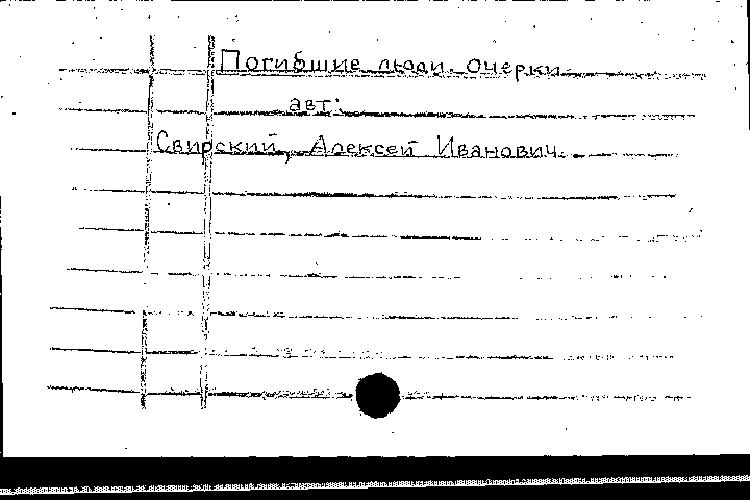 Погибшие люди. Очерки.
авт:
Свирский, Алексей Иванович.